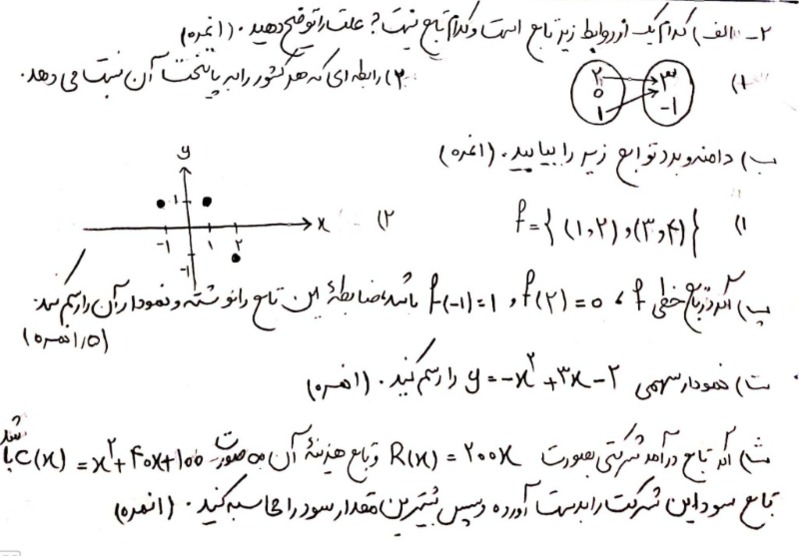 ۲- الف) کدام یک از روابط زیر تابع است و کدام تابع نیست؟ علت را توضیح دهید. (۱نمره)
۱) ۲ ۵ ۱ ۳ -۱ ۲) رابطه ای که هر کشور را به پایتخت آن نسبت می دهد.
ب) دامنه و برد توابع زیر را بیابید. (۱نمره)
۱) f = { (۱،۲) ، (۳،۴) } ۲) y x ۱ -۱ ۱ ۲ -۱
پ) اگر در تابع خطی f ، f(۲) = ۰ و f(-۱) = ۱ باشد، ضابطهٔ این تابع را نوشته و نمودار آن را رسم کنید.
(۱/۵نمره)
ت) نمودار سهمی y = -x² + ۳x - ۲ را رسم کنید. (۱نمره)
ث) اگر تابع درآمد شرکتی بصورت R(x) = ۲۰۰x و تابع هزینهٔ آن به صورت C(x) = x² + ۴۰x + ۱۰۰ باشد
تابع سود این شرکت را بدست آورده و سپس بیشترین مقدار سود را محاسبه کنید. (۱نمره)